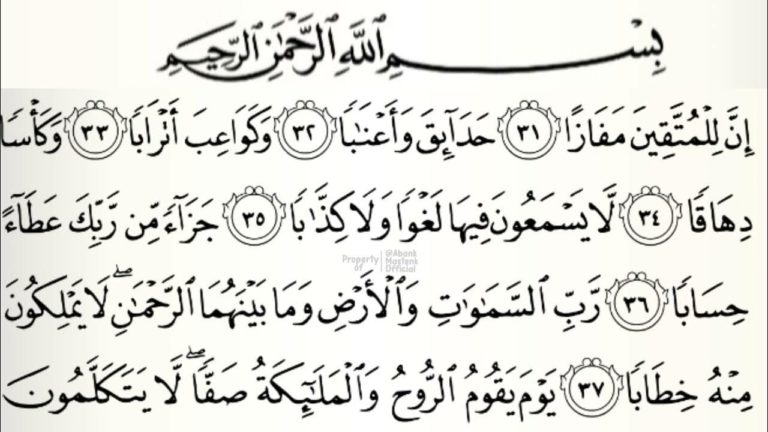 بِسْمِ ٱللَّهِ ٱلرَّحْمَٰنِ ٱلرَّحِيمِ
إِنَّ لِلْمُتَّقِينَ مَفَازًا ٣١ حَدَآئِقَ وَأَعْنَٰبًا ٣٢ وَكَوَاعِبَ أَتْرَابًا ٣٣ وَكَأْسًا
دِهَاقًا ٣٤ لَّا يَسْمَعُونَ فِيهَا لَغْوًا وَلَا كِذَّٰبًا ٣٥ جَزَآءً مِّن رَّبِّكَ عَطَآءً
Property of @Abank Mastenk Official
حِسَابًا ٣٦ رَّبِّ ٱلسَّمَٰوَٰتِ وَٱلْأَرْضِ وَمَا بَيْنَهُمَا ٱلرَّحْمَٰنِ ۖ لَا يَمْلِكُونَ
مِنْهُ خِطَابًا ٣٧ يَوْمَ يَقُومُ ٱلرُّوحُ وَٱلْمَلَٰٓئِكَةُ صَفًّا ۖ لَّا يَتَكَلَّمُونَ